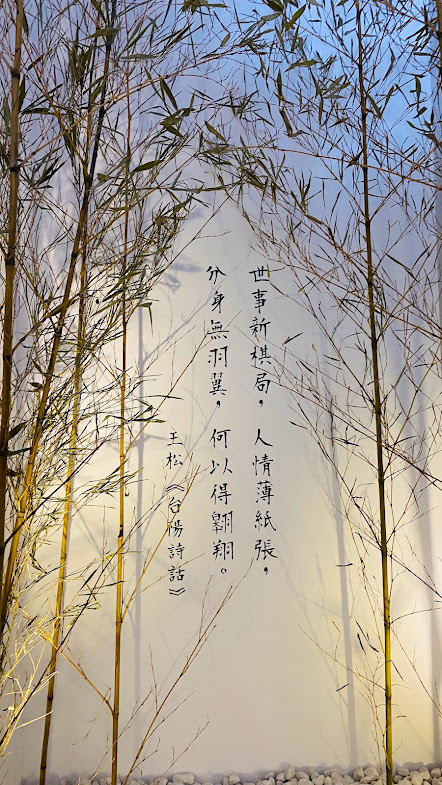 世事新棋局，人情薄紙張，
分身無羽翼，何以得翱翔。
王松《台陽詩話》